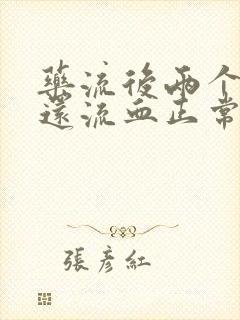 藥流後兩个
還流血正常
張彥紅